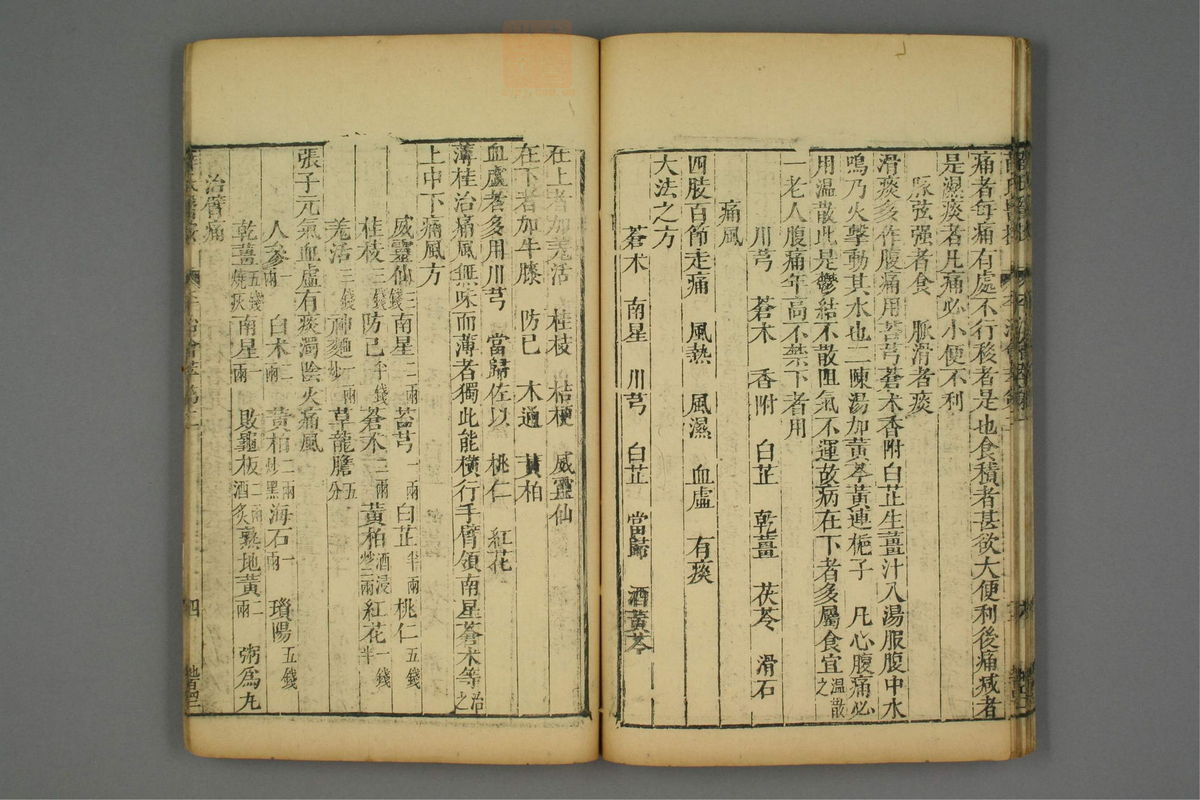 痛者每痛有處不行移者是也食積者甚欲大便利後痛減者
是濕痰者凡痛必小便不利
脉弦强者食　脉滑者痰
滑痰多作腹痛用苔芎蒼木香附白芷生薑汁入湯服腹中水
鳴乃火擊動其水也二陳湯加黃芩黃連梔子　凡心腹痛必
用温散此是鬱結不散阻氣不運故病在下者多屬食宜温散之
一老人腹痛年高不禁下者用
川芎　蒼木　香附　白芷　乾薑　茯苓　滑石
痛風
四肢百節走痛　風熱　風濕　血虛　有痰
大法之方
蒼术　南星　川芎　白芷　當歸　酒黃芩
在上者加羗活　桂枝　桔梗　威靈仙
在下者加牛膝　防已　木通　黃柏
血虛者多用川芎　當歸佐以　桃仁　紅花
薄桂治痛風無味而薄者獨此能橫行手臂領南星蒼术等治之
上中下痛風方
威靈仙三錢南星二兩苔芎一兩白芷半兩桃仁五錢
桂枝三錢防已半錢蒼术二兩黃柏酒浸炒二兩紅花一錢半
羗活三錢神麯炒一兩草龍膽五分
張子元氣血虛有痰濁陰火痛風
人參一兩白术二兩黃柏二兩炒黑海石一兩瑣陽五錢
乾薑五錢燒灰南星一兩敗龜板二兩酒炙熟地黃二兩　粥爲丸
治臂痛
四